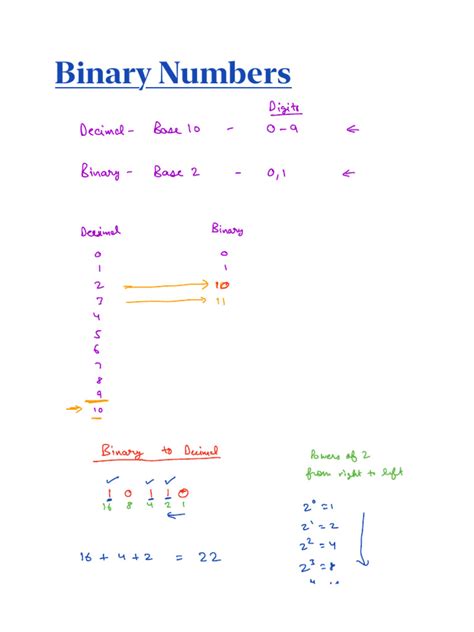 Binary Numbers
Digits
Decimal - Base 10 - 0-9 ←
Binary - Base 2 - 0,1 ←
Decimal Binary
0 0
1 1
2 → 10
3 → 11
4
5
6
7
8
9
→ 10
Binary to Decimal
✓ ✓ ✓
1 0 1 1 0
16 8 4 2 1
←
16 + 4 + 2 = 22
Powers of 2
from right to left
2⁰ = 1
2¹ = 2
2² = 4
2³ = 8